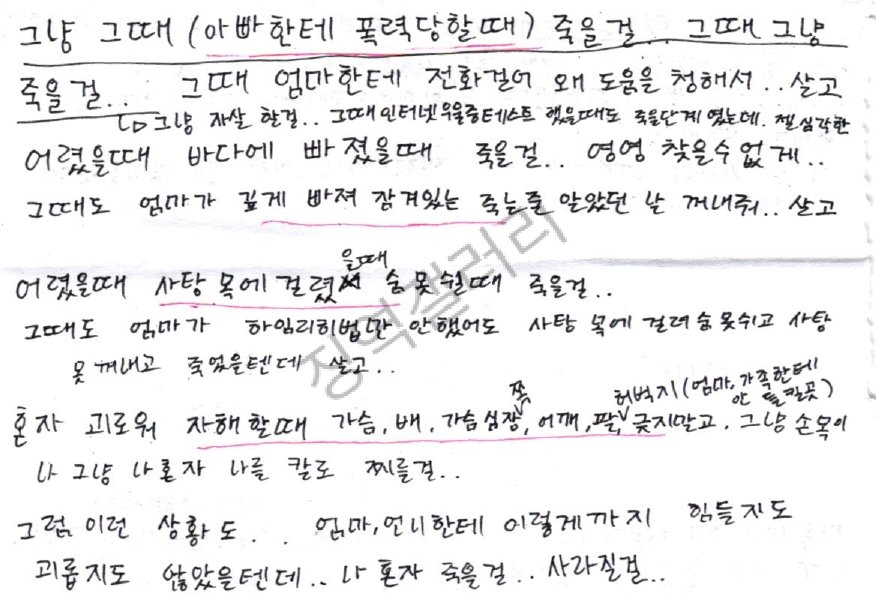 그냥 그때 (아빠한테 폭력당할때) 죽을걸.. 그때 그냥
죽을걸.. 그때 엄마한테 전화걸어 왜 도움을 청해서.. 살고
↳ 그냥 자살 할걸.. 그때 인터넷 우울증테스트 했을때도 죽을단계 였는데. 젤심각한
어렸을때 바다에 빠졌을때 죽을걸.. 영영 찾을수 없게..
그때도 엄마가 깊게 빠져 잠겨있는 죽는줄 알았던 날 꺼내줘.. 살고
어렸을때 사탕 목에 걸렸을때 숨 못쉴때 죽을걸..
그때도 엄마가 하임리히법만 안했어도 사탕 목에 걸려 숨못쉬고 사탕
못 꺼내고 죽었을텐데 살고..
혼자 괴로워 자해할때 가슴, 배, 가슴심장쪽, 어깨, 팔, 허벅지(엄마, 가족한테 안 들킬곳) 긋지말고. 그냥 손목이
나 그냥 나혼자 나를 칼로 찌를걸..
그럼 이런 상황도.. 엄마, 언니한테 이렇게까지 힘들지도
괴롭지도 않았을텐데.. 나 혼자 죽을걸.. 사라질걸..
징역갤러리